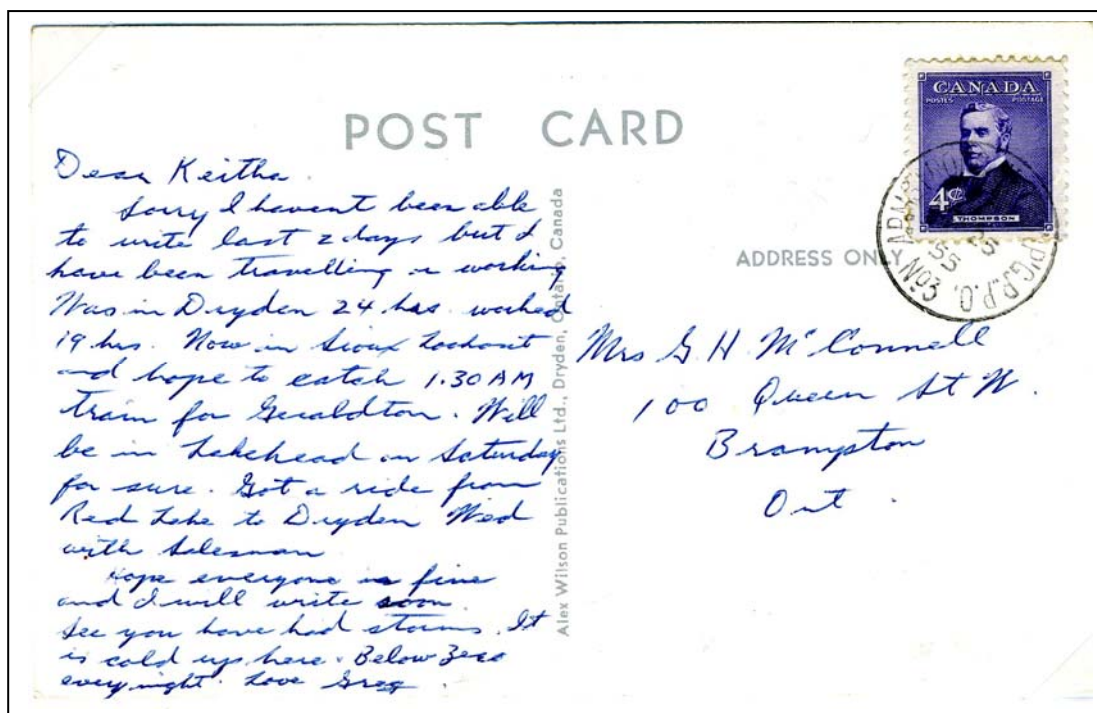 POST CARD
CANADA
POSTES POSTAGE
4¢
THOMPSON
ADDRESS ONLY
Dear Keitha.
Sorry I havent been able
to write last 2 days but I
have been travelling & working
Was in Dryden 24 hrs. worked
19 hrs. Now in Sioux Lookout
and hope to catch 1.30 AM
train for Geraldton. Will
be in Lakehead on Saturday
for sure. Got a ride from
Red Lake to Dryden Wed
with Salesman
Hope everyone is fine
and I will write soon.
See you have had storms. It
is cold up here. Below Zero
every night. Love Greg.
Alex Wilson Publications Ltd., Dryden, Ontario, Canada
Mrs G H McConnell
100 Queen St W.
Brampton
Ont
R.P.O. No3
55